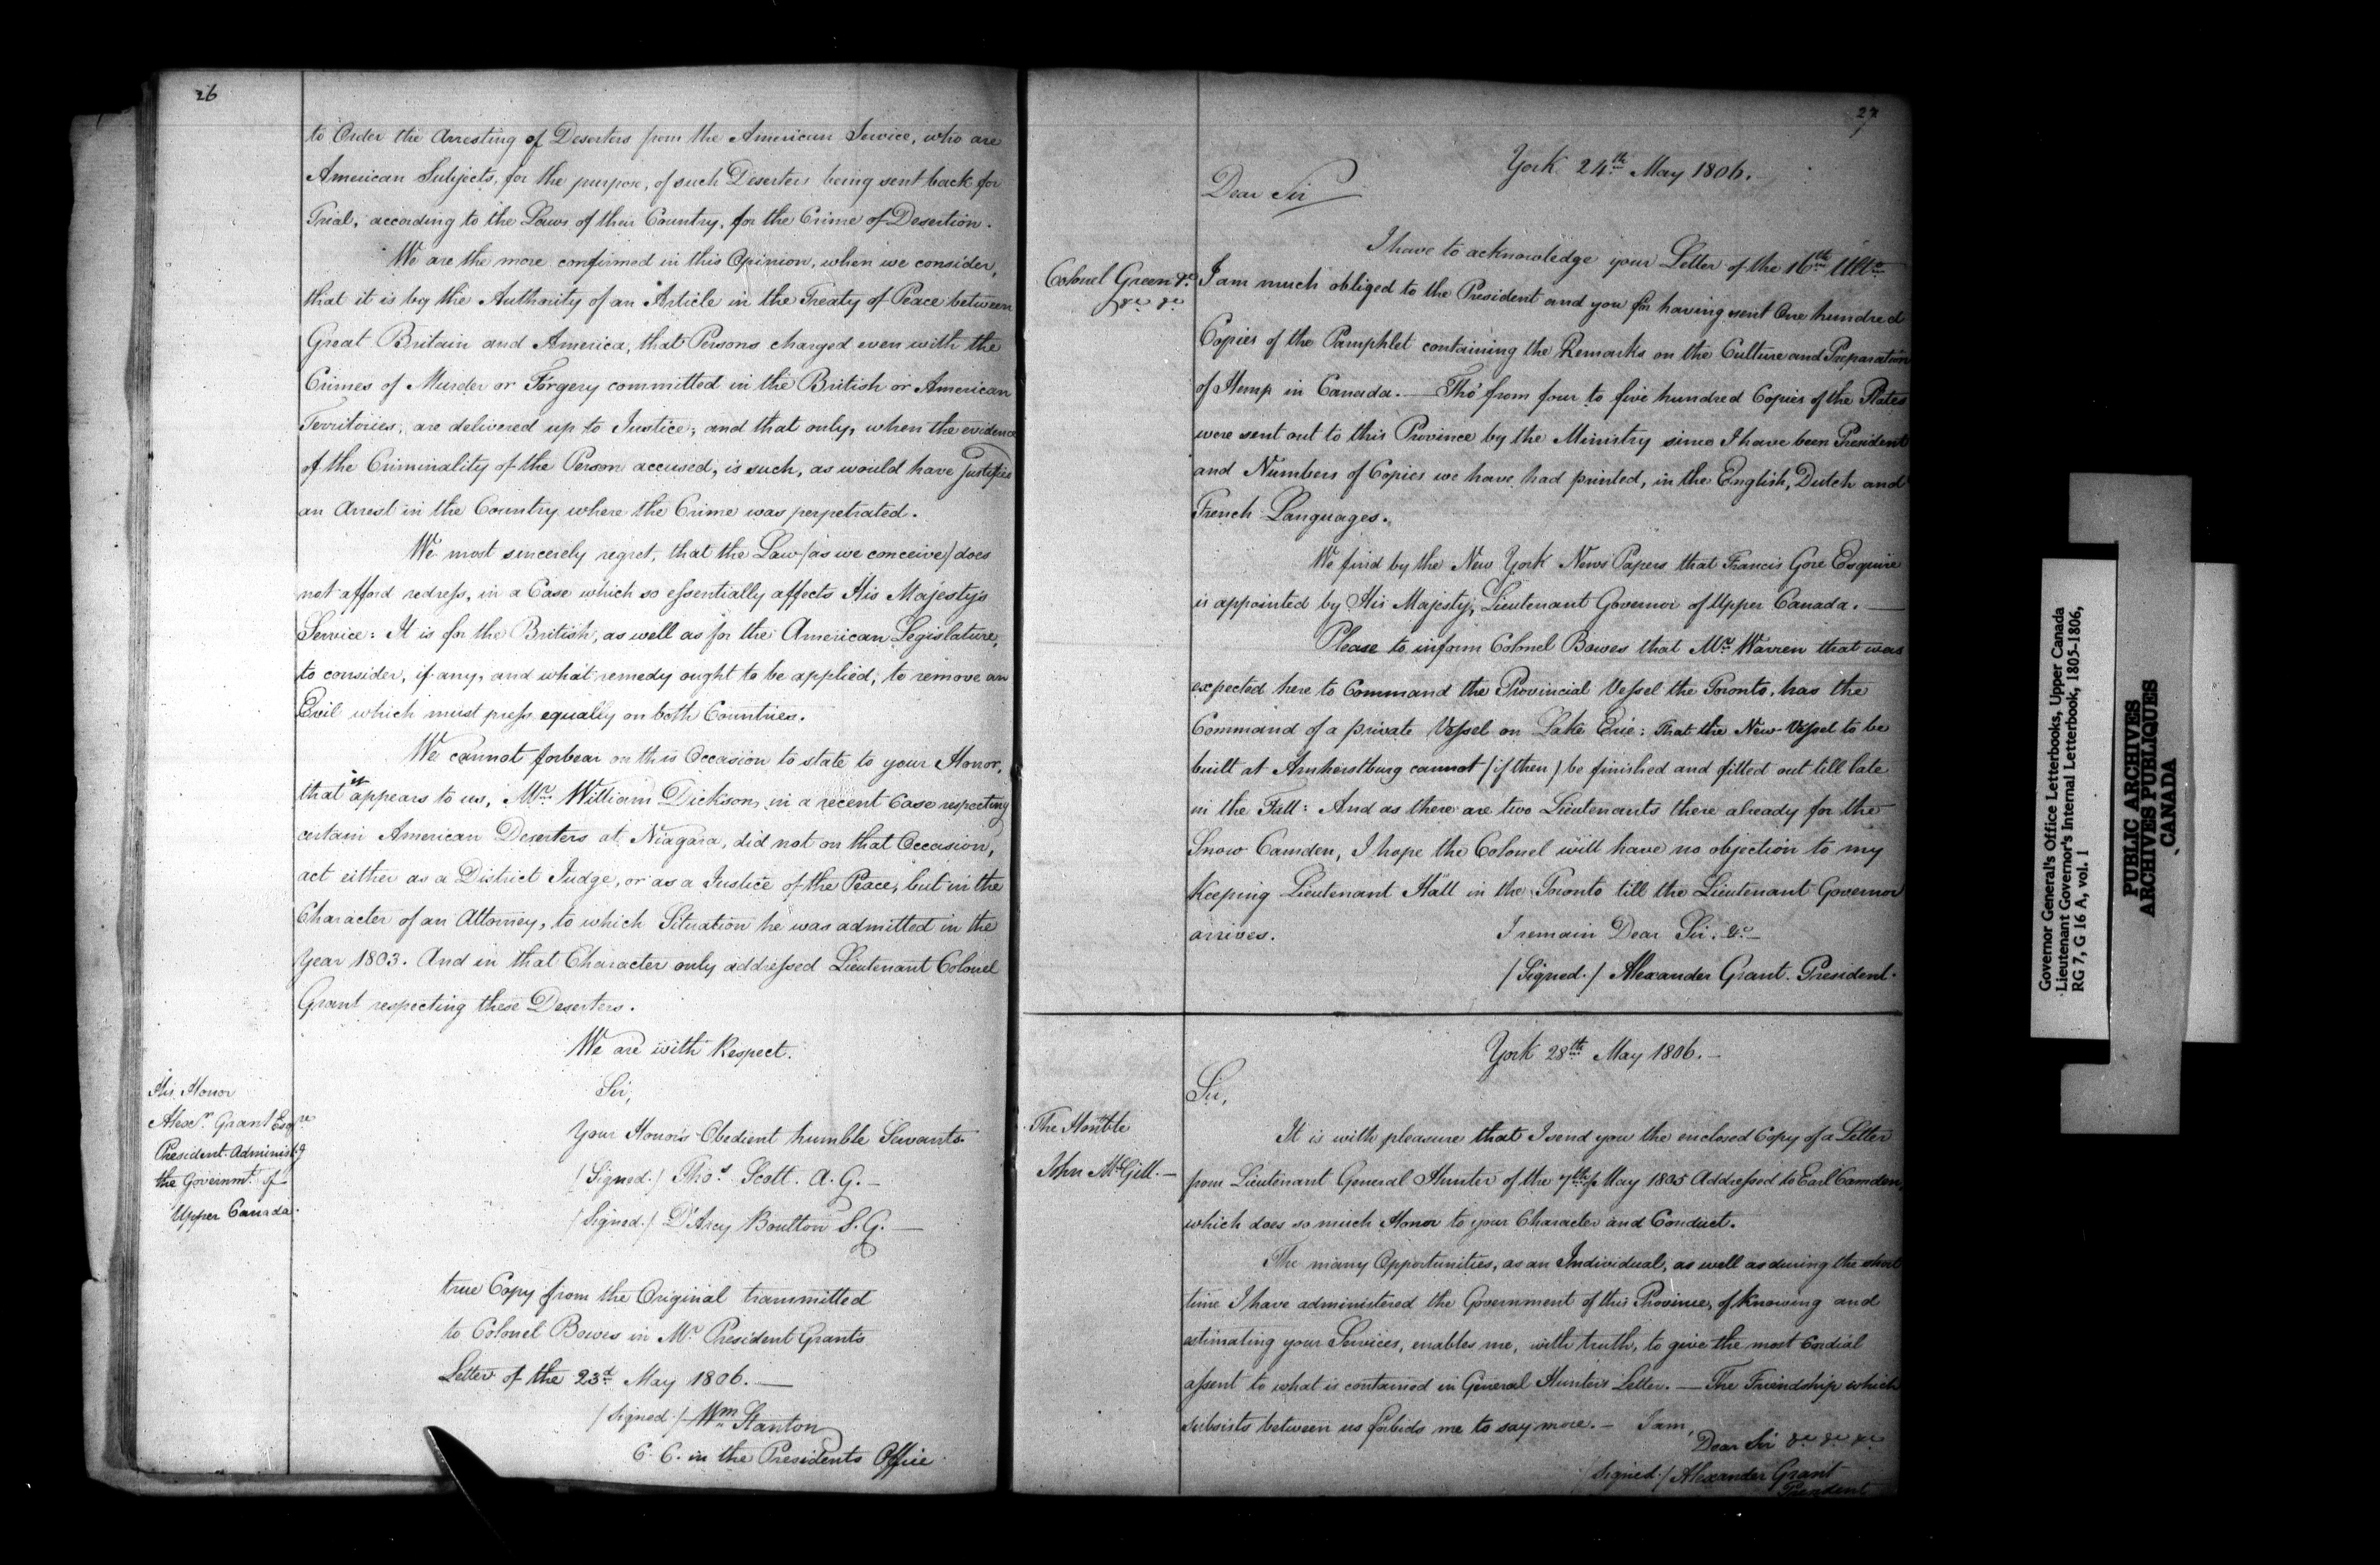 26
to Order the Arresting of Deserters from the American Service, who are
American Subjects, for the purpose, of such Deserters being sent back for
Trial, according to the Laws of their Country, for the Crime of Desertion.
We are the more confirmed in this Opinion, when we consider,
that it is by the Authority of an Article in the Treaty of Peace between
Great Britain and America, that Persons charged even with the
Crimes of Murder or Forgery committed in the British or American
Territories, are delivered up to Justice; and that only, when the evidence
of the Criminality of the Person accused, is such, as would have Justified
an Arrest in the Country where the Crime was perpetrated.
We most sincerely regret, that the Law (as we conceive) does
not afford redress, in a Case which so essentially affects His Majestys
Service: It is for the British, as well as for the American Legislature,
to consider, if any, and what remedy ought to be applied, to remove an
Evil which must press equally on both Countries.
We cannot forbear on this Occasion to state to your Honor,
that it appears to us, Mr. William Dickson, in a recent Case respecting
certain American Deserters at Niagara, did not on that Occasion,
act either as a District Judge, or as a Justice of the Peace, but in the
Character of an Attorney, to which Situation he was admitted in the
Year 1803. And in that Character only addressed Lieutenant Colonel
Grant respecting these Deserters.
We are with Respect.
Sir,
Your Honor's Obedient humble Servants
(Signed.) Thos. Scott. A.G.—
(Signed.) D'Arcy Boulton S.G.—
His Honor
Alexr. Grant Esqre
President Administg
the Governmt. of
Upper Canada.
true Copy from the Original transmitted
to Colonel Bowes in Mr. President Grants
Letter of the 23d. May 1806.—
(Signed.) Wm. Stanton
C.C. in the Presidents Office
27
York 24th May 1806.
Dear Sir
I have to acknowledge your Letter of the 16th Ulto.
Colonel Green &c.
&c. &c.
I am much obliged to the President and you for having sent One hundred
Copies of the Pamphlet containing the Remarks on the Culture and Preparation
of Hemp in Canada.— Tho' from four to five hundred Copies of the Plates
were sent out to this Province by the Ministry since I have been President
and Numbers of Copies we have had printed, in the English, Dutch and
French Languages.
We find by the New York News Papers that Francis Gore Esquire
is appointed by His Majesty, Lieutenant Governor of Upper Canada.—
Please to inform Colonel Bowes that Mr. Warren that was
expected here to Command the Provincial Vessel the Toronto, has the
Command of a private Vessel on Lake Erie: That the New Vessel to be
built at Amherstburg cannot (if then) be finished and fitted out till late
in the Fall: And as there are two Lieutenants there already for the
Snow Camden, I hope the Colonel will have no objection to my
Keeping Lieutenant Hall in the Toronto till the Lieutenant Governor
arrives.
I remain Dear Sir. &c.—
(Signed.) Alexander Grant. President.
York 28th May 1806.—
Sir,
The Honble
John McGill.—
It is with pleasure that I send you the enclosed Copy of a Letter
from Lieutenant General Hunter of the 7th of May 1805 Addressed to Earl Camden,
which does so much Honor to your Character and Conduct.
The many Opportunities, as an Individual, as well as during the short
time I have administered the Government of this Province, of knowing and
estimating your Services, enables me, with truth, to give the most Cordial
assent to what is contained in General Hunters Letter.— The Friendship which
subsists between us forbids me to say more.— I am,
Dear Sir &c. &c. &c.
(Signed.) Alexander Grant
President
Governor General's Office Letterbooks, Upper Canada
Lieutenant Governor's Internal Letterbook, 1805-1806,
RG 7, G 16 A, vol. 1
PUBLIC ARCHIVES
ARCHIVES PUBLIQUES
CANADA